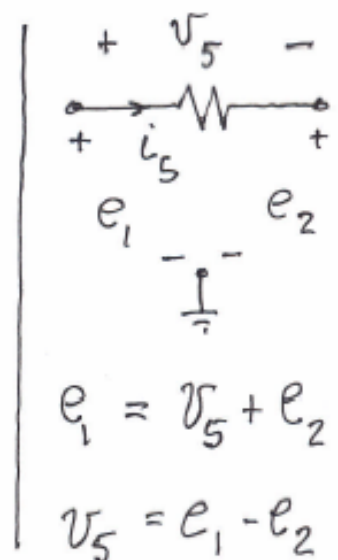 + v₅ −
+ i₅ +
e₁ e₂
− −
e₁ = v₅ + e₂
v₅ = e₁ - e₂